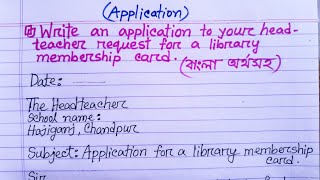 (Application)
Write an application to your head-
teacher request for a library
membership card. (বাংলা অর্থসহ)
Date:
The Headteacher
School name:
Hajiganj, Chandpur
Subject: Application for a library membership
card.
Sir